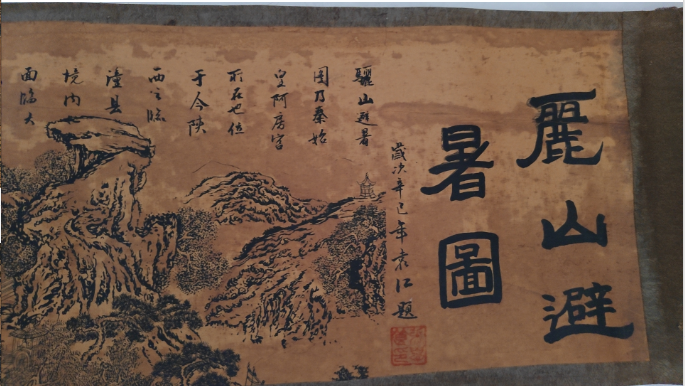 麗山避
暑圖
歲次辛巳年袁江題
驪山避暑
圖乃秦始
皇阿房宫
所在也位
于今陝
西之臨
潼县
境内
面临大